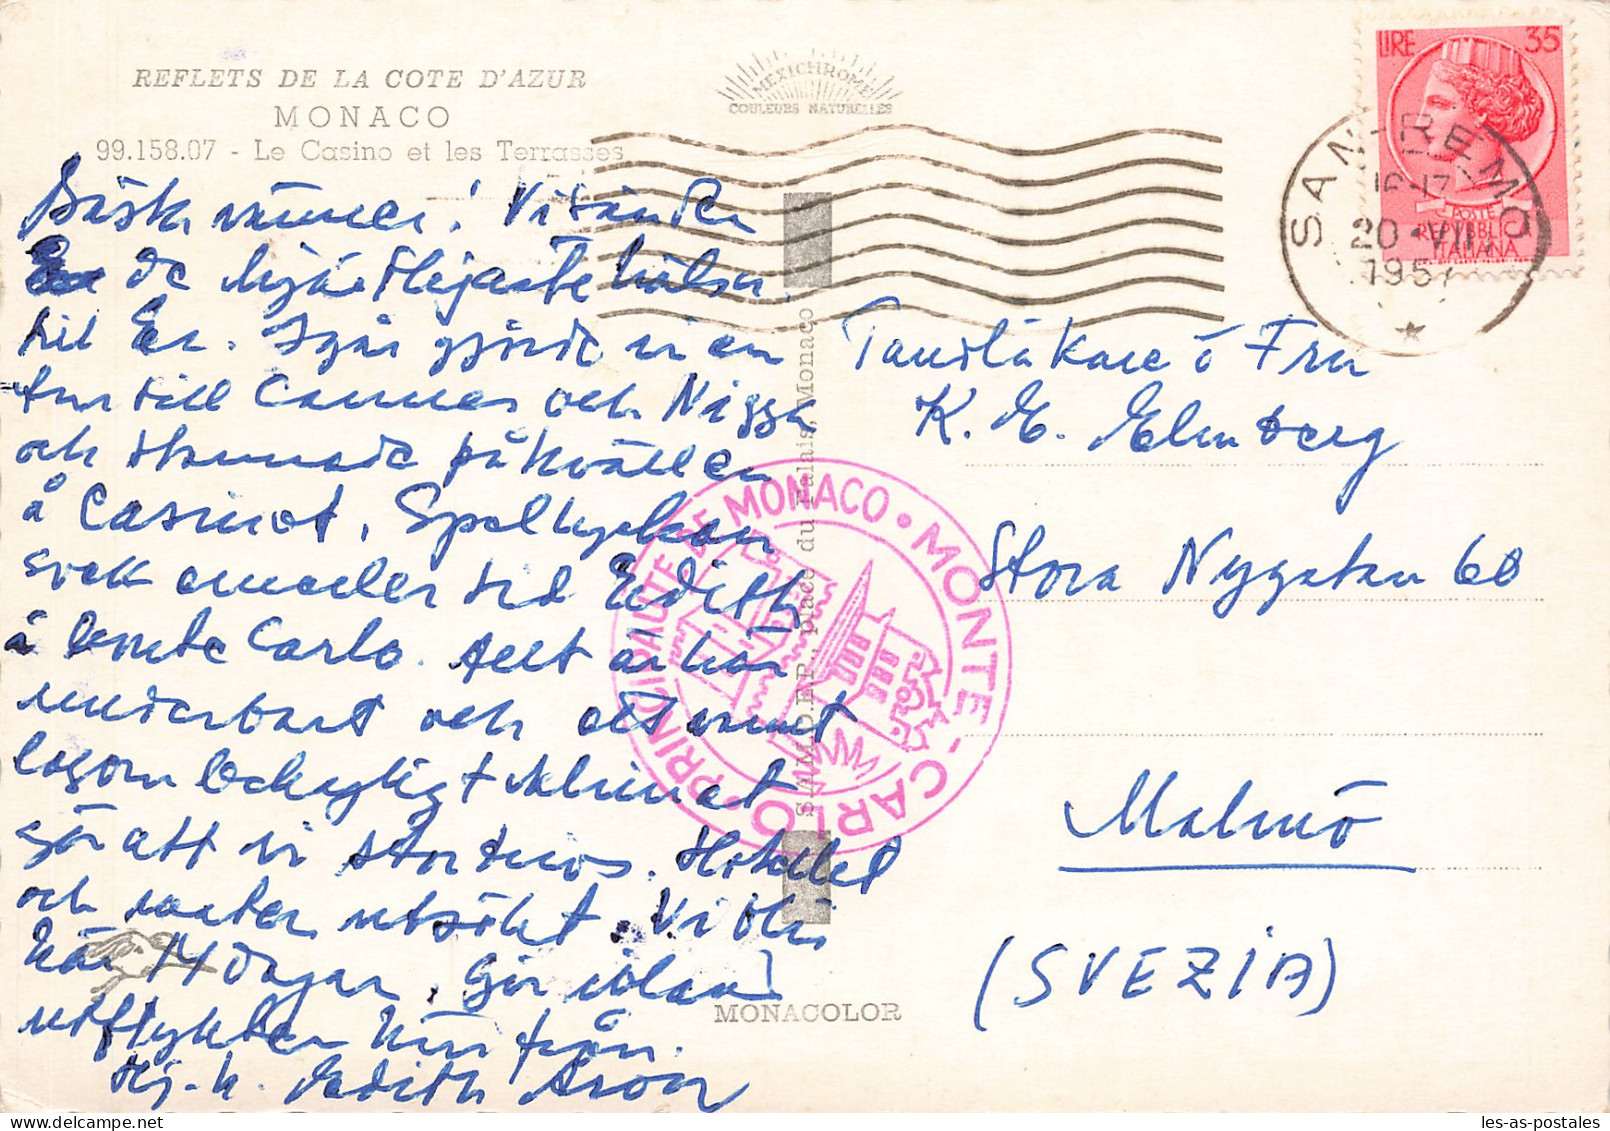 REFLETS DE LA COTE D'AZUR
MONACO
99.158.07 - Le Casino et les Terrasses
MEXICHROME
COULEURS NATURELLES
LIRE 35
POSTE
REPUBBLICA
ITALIANA
SAN REMO
16-17
20 · VII
1957
Bästa vänner! Vi sänder
Er de hjärtligaste hälsn.
till Er. I går gjorde vi en
tur till Cannes och Nizza
och stannade på kvällen
å Casinot. Spellyckan
svek emellertid Edith
å Monte Carlo. Allt är här
underbart och ett varmt
lagom behagligt klimat
gör att vi stortrivs. Hotellet
och maten utsökt. Vi bli
här 14 dagar. Gör ibland
utflykter härifrån.
Hj. h. Edith Aron
PRINCIPAUTE DE MONACO • MONTE-CARLO •
S.A.M.D.E.P., place du Palais, Monaco
MONACOLOR
Tandläkare o Fru
K. E. Elmberg
Stora Nygatan 60
Malmö
(SVEZIA)
les-as-postales